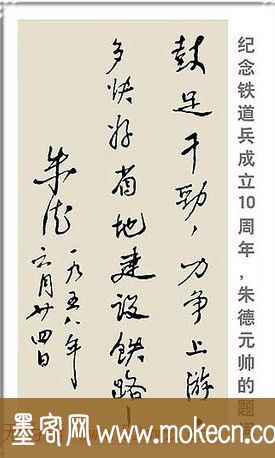 纪念铁道兵成立10周年,朱德元帅的题词
鼓足干劲,力争上游,
多快好省地建设铁路!
朱德
一九五八年
六月廿四日
墨客网 www.mokecn.com